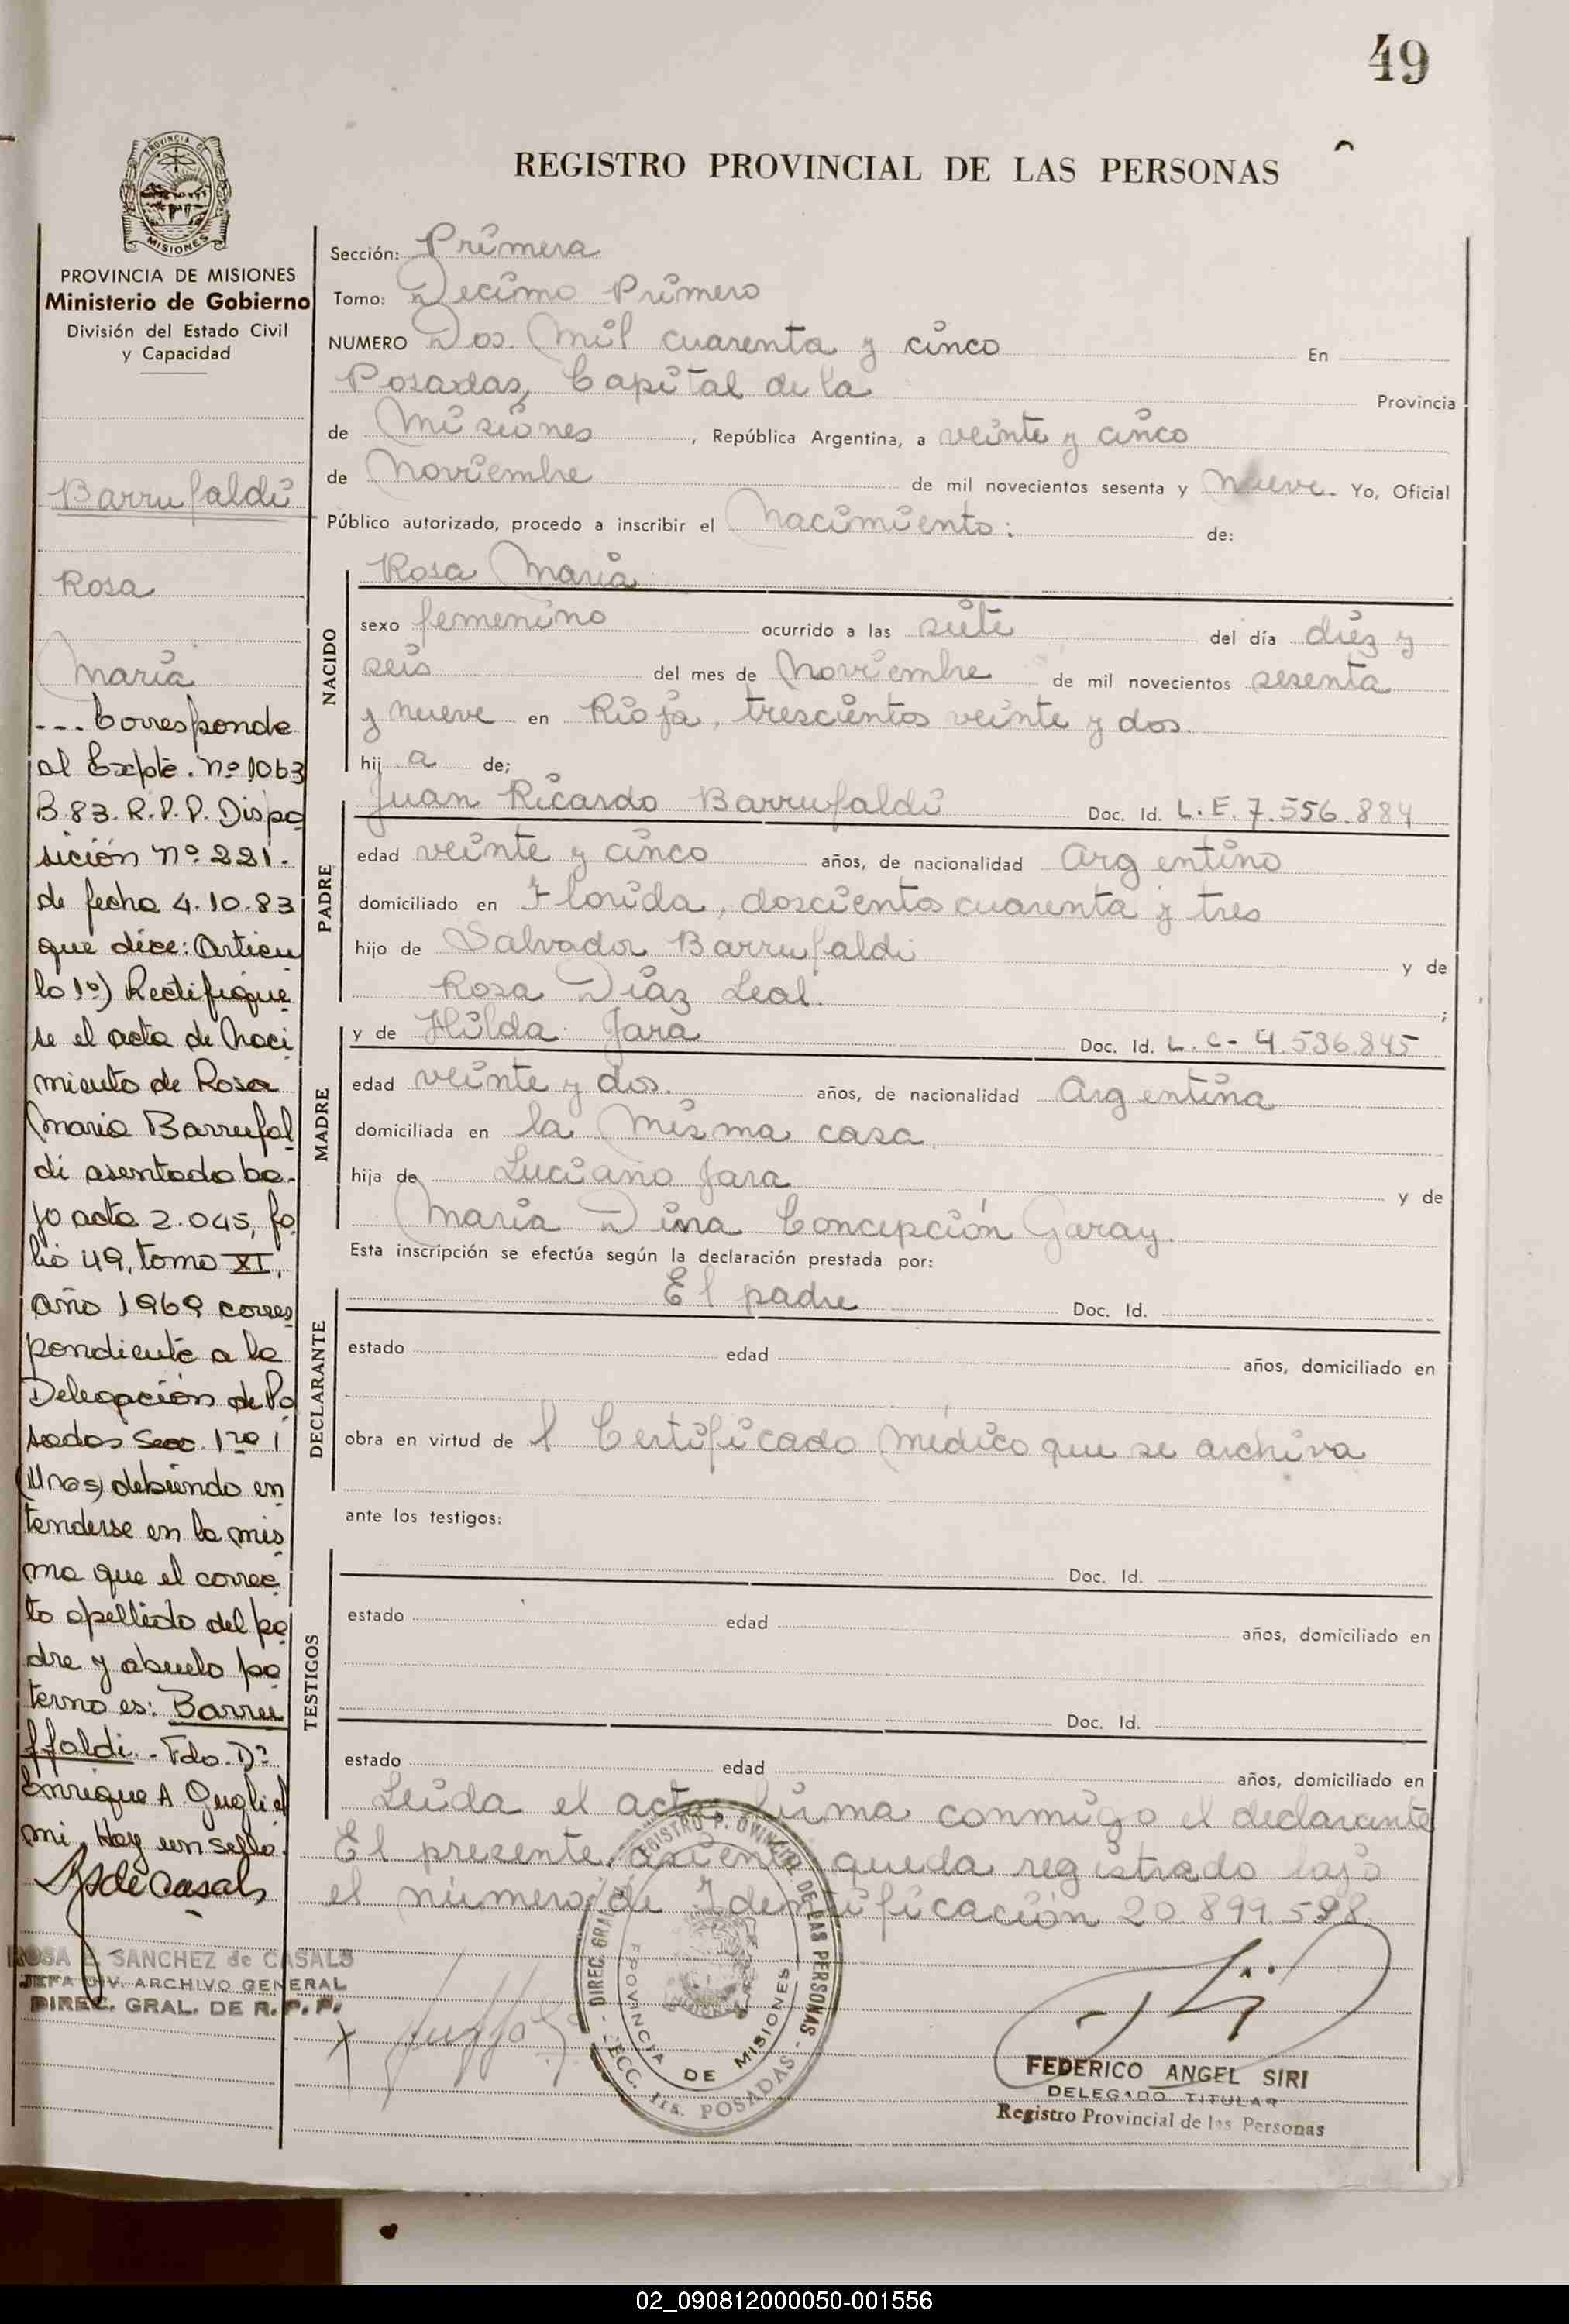 49
REGISTRO PROVINCIAL DE LAS PERSONAS
PROVINCIA DE MISIONES
PROVINCIA DE MISIONES
Ministerio de Gobierno
División del Estado Civil
y Capacidad
Barrufaldi
Rosa
Maria
--- Corresponde
al Expte. Nº 1063
B.83. R.P.P. Dispo
sición nº 221.
de fecha 4.10.83
que dice: Artícu
lo 1º) Rectifíque
se el acta de Naci
miento de Rosa
Maria Barrufal
di asentada ba-
jo acta 2.045, fo
lio 49, tomo XI,
año 1969 corres
pondiente a la
Delegación de Po
sadas Secc. 1ra 1
debiendo en
tenderse en la mis
ma que el correc
to apellido del pa
dre y abuelo pa
terno es: Barru
ffaldi. - Fdo. Dº
Enrique A. Gugliel
mi. Hay un sello.
RSdeCasals
ROSA E. SANCHEZ de CASALS
JEFA DIV. ARCHIVO GENERAL
DIREC. GRAL. DE R. P. P.
Sección: Primera
Tomo: Decimo Primero
NUMERO Dos Mil cuarenta y cinco En
Posadas, Capital de la Provincia
de Misiones, República Argentina, a veinte y cinco
de Noviembre de mil novecientos sesenta y nueve. Yo, Oficial
Público autorizado, procedo a inscribir el Nacimiento: de:
NACIDO
Rosa Maria
sexo femenino ocurrido a las siete del día diez y
seis del mes de Noviembre de mil novecientos sesenta
y nueve en Rioja, trescientos veinte y dos.
hij a de;
PADRE
Juan Ricardo Barrufaldi Doc. Id. L.E. 7.556.884
edad veinte y cinco años, de nacionalidad Argentino
domiciliado en Florida, doscientos cuarenta y tres
hijo de Salvador Barrufaldi y de
Rosa Diaz Leal. ;
MADRE
y de Hilda Jara Doc. Id. L.C- 4.536.845
edad veinte y dos. años, de nacionalidad Argentina
domiciliada en la misma casa.
hija de Luciano Jara y de
Maria Dina Concepción Garay.
Esta inscripción se efectúa según la declaración prestada por:
DECLARANTE
El padre Doc. Id.
estado edad años, domiciliado en
obra en virtud de l Certificado Médico que se archiva
ante los testigos:
TESTIGOS
Doc. Id.
estado edad años, domiciliado en
Doc. Id.
estado edad años, domiciliado en
Leida el acta, firma conmigo el declarante
El presente asiento queda registrado bajo
el número de Identificación 20.899.598
DIREC. GRAL. REGISTRO PROVINCIAL DE LAS PERSONAS - SECC. 1ra. POSADAS -
PROVINCIA DE MISIONES
FEDERICO ANGEL SIRI
DELEGADO TITULAR
Registro Provincial de las Personas
02_090812000050-001556